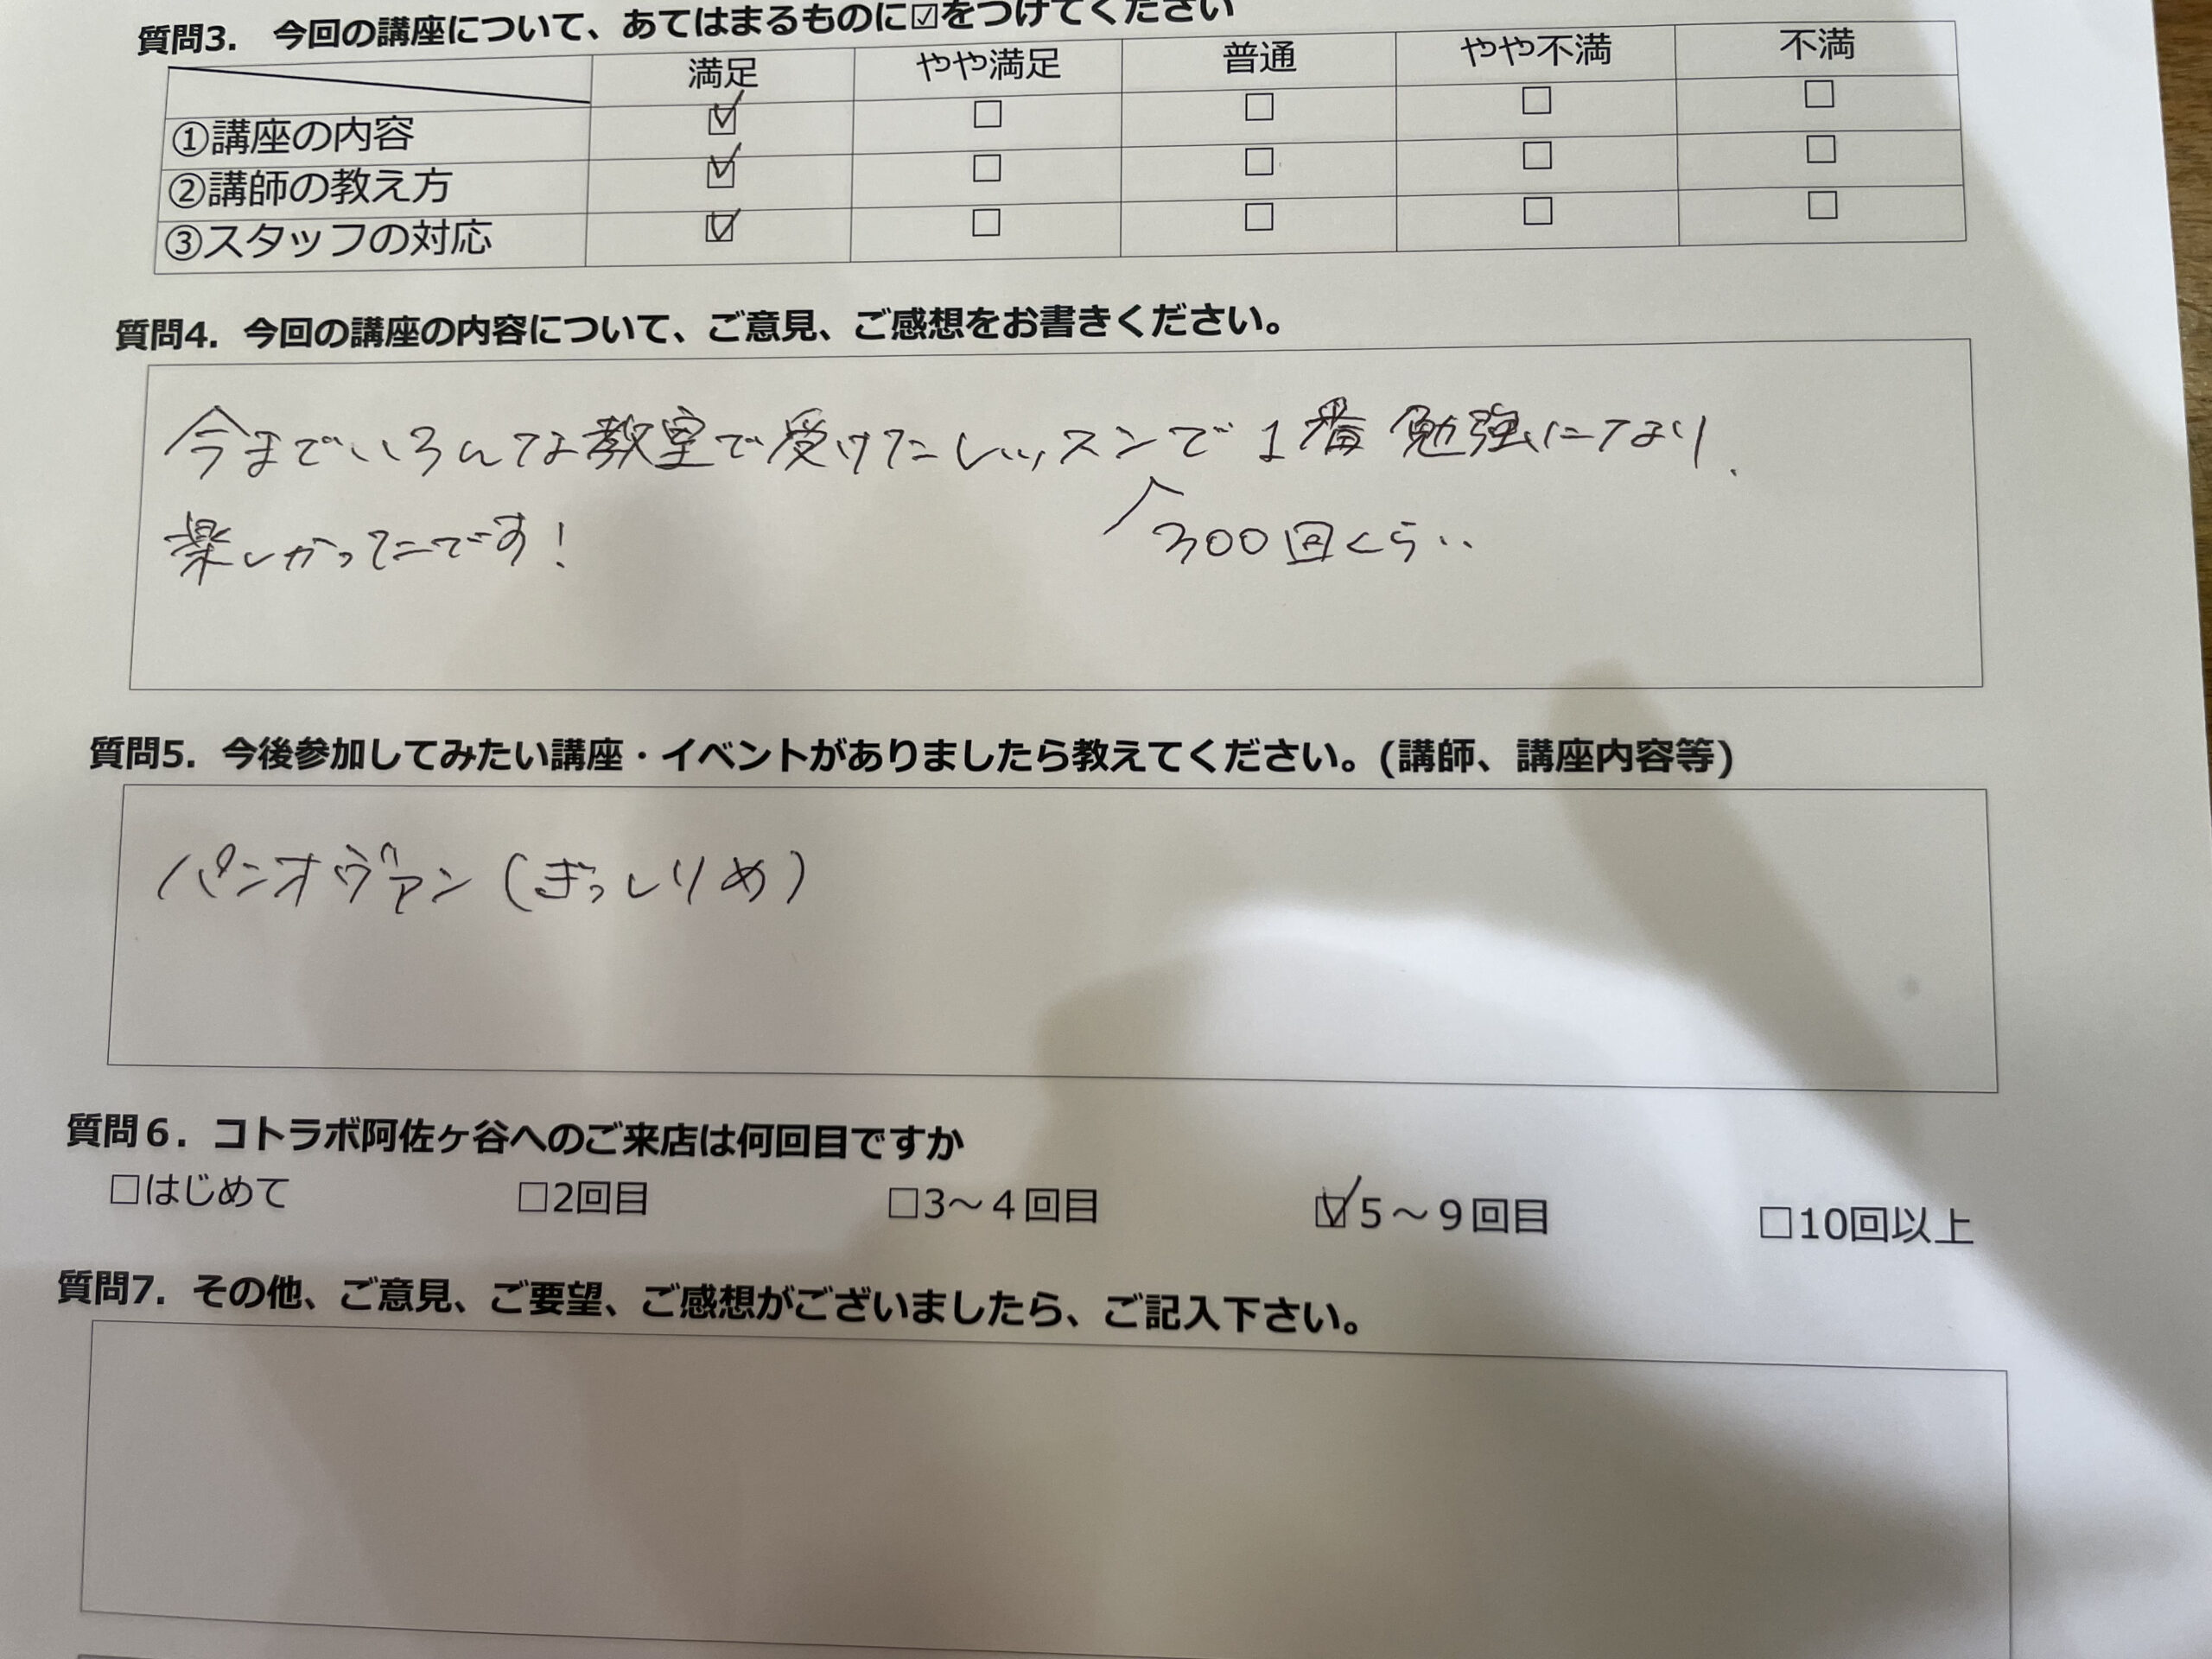 質問3. 今回の講座について、あてはまるものに☑をつけてください
満足 やや満足 普通 やや不満 不満
①講座の内容 ☑ □ □ □ □
②講師の教え方 ☑ □ □ □ □
③スタッフの対応 ☑ □ □ □ □
質問4. 今回の講座の内容について、ご意見、ご感想をお書きください。
今までいろんな教室で受けたレッスンで1番勉強になり、
楽しかったです!
300回くらい..
質問5. 今後参加してみたい講座・イベントがありましたら教えてください。(講師、講座内容等)
パンオヴァン(ぎっしりめ)
質問6. コトラボ阿佐ヶ谷へのご来店は何回目ですか
□はじめて □2回目 □3～4回目 ☑5～9回目 □10回以上
質問7. その他、ご意見、ご要望、ご感想がございましたら、ご記入下さい。